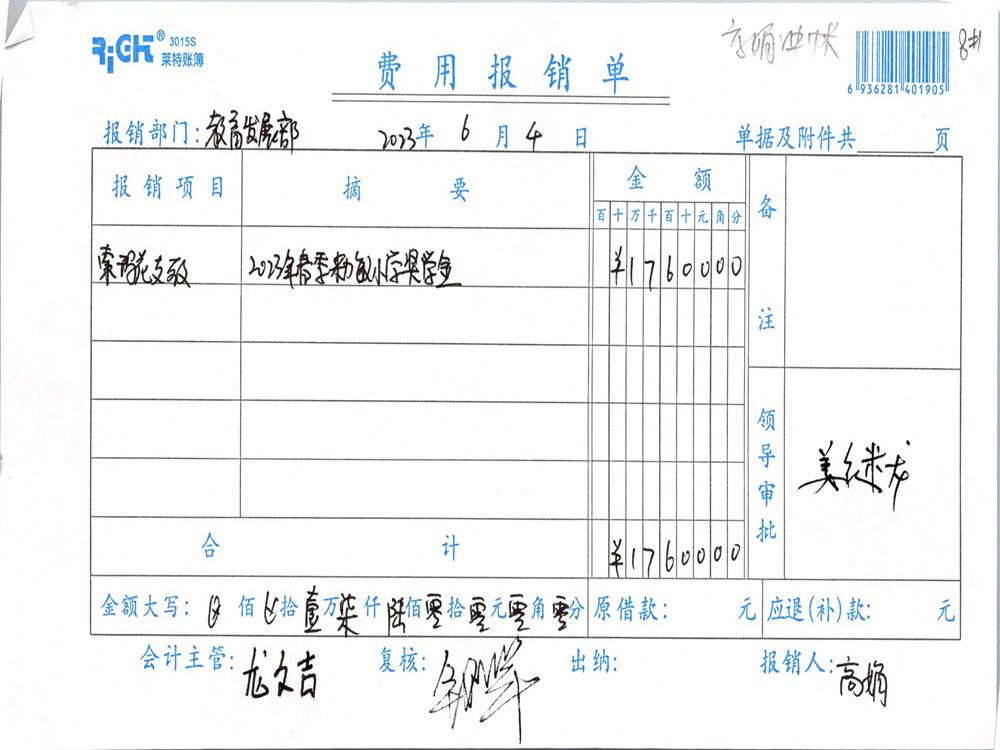 RiCH® 3015S
莱特账簿
费用报销单
6 936281 401905
8#
报销部门:教育发展部 2023年 6 月 4 日 单据及附件共 页
报销项目 摘要 金额 备注
百十万千百十元角分
索玛花支教 2023年春季 小学奖学金 ¥1760000
领导审批
合计 ¥1760000
金额大写: 佰 拾 壹万 柒仟 陆佰 零拾 零元 零角 零分 原借款: 元 应退(补)款: 元
会计主管: 龙文吉 复核: 出纳: 报销人: 高娟